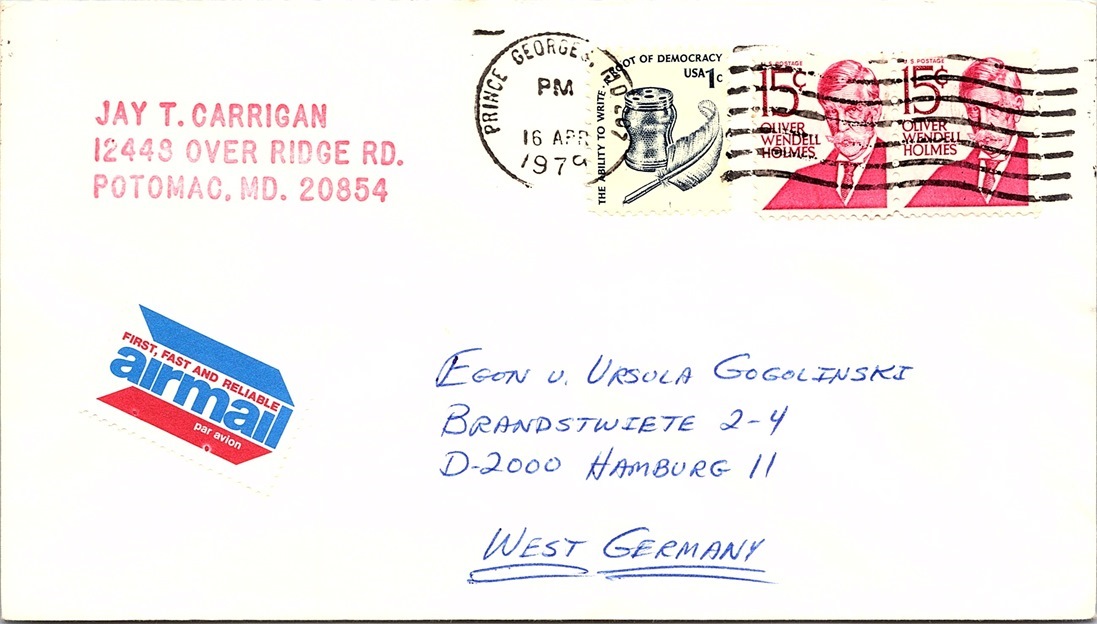 JAY T. CARRIGAN
12448 OVER RIDGE RD.
POTOMAC, MD. 20854
PRINCE GEORGES, MD 207
PM
16 APR
1979
ROOT OF DEMOCRACY
USA 1c
THE ABILITY TO WRITE·
U S POSTAGE
15¢
OLIVER
WENDELL
HOLMES
U S POSTAGE
15¢
OLIVER
WENDELL
HOLMES
FIRST, FAST AND RELIABLE
airmail
par avion
EGON U. URSULA GOGOLINSKI
BRANDSTWIETE 2-4
D-2000 HAMBURG 11
WEST GERMANY